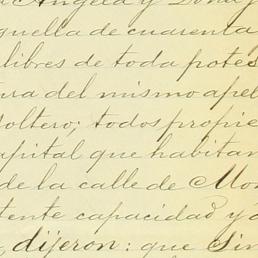 Angela y Doña
quella de cuarenta
libres de toda potes
ura del mismo apel
oltero; todos propie
apital que habitan
de la calle de Mon
tente capacidad y
dijeron: que Sin